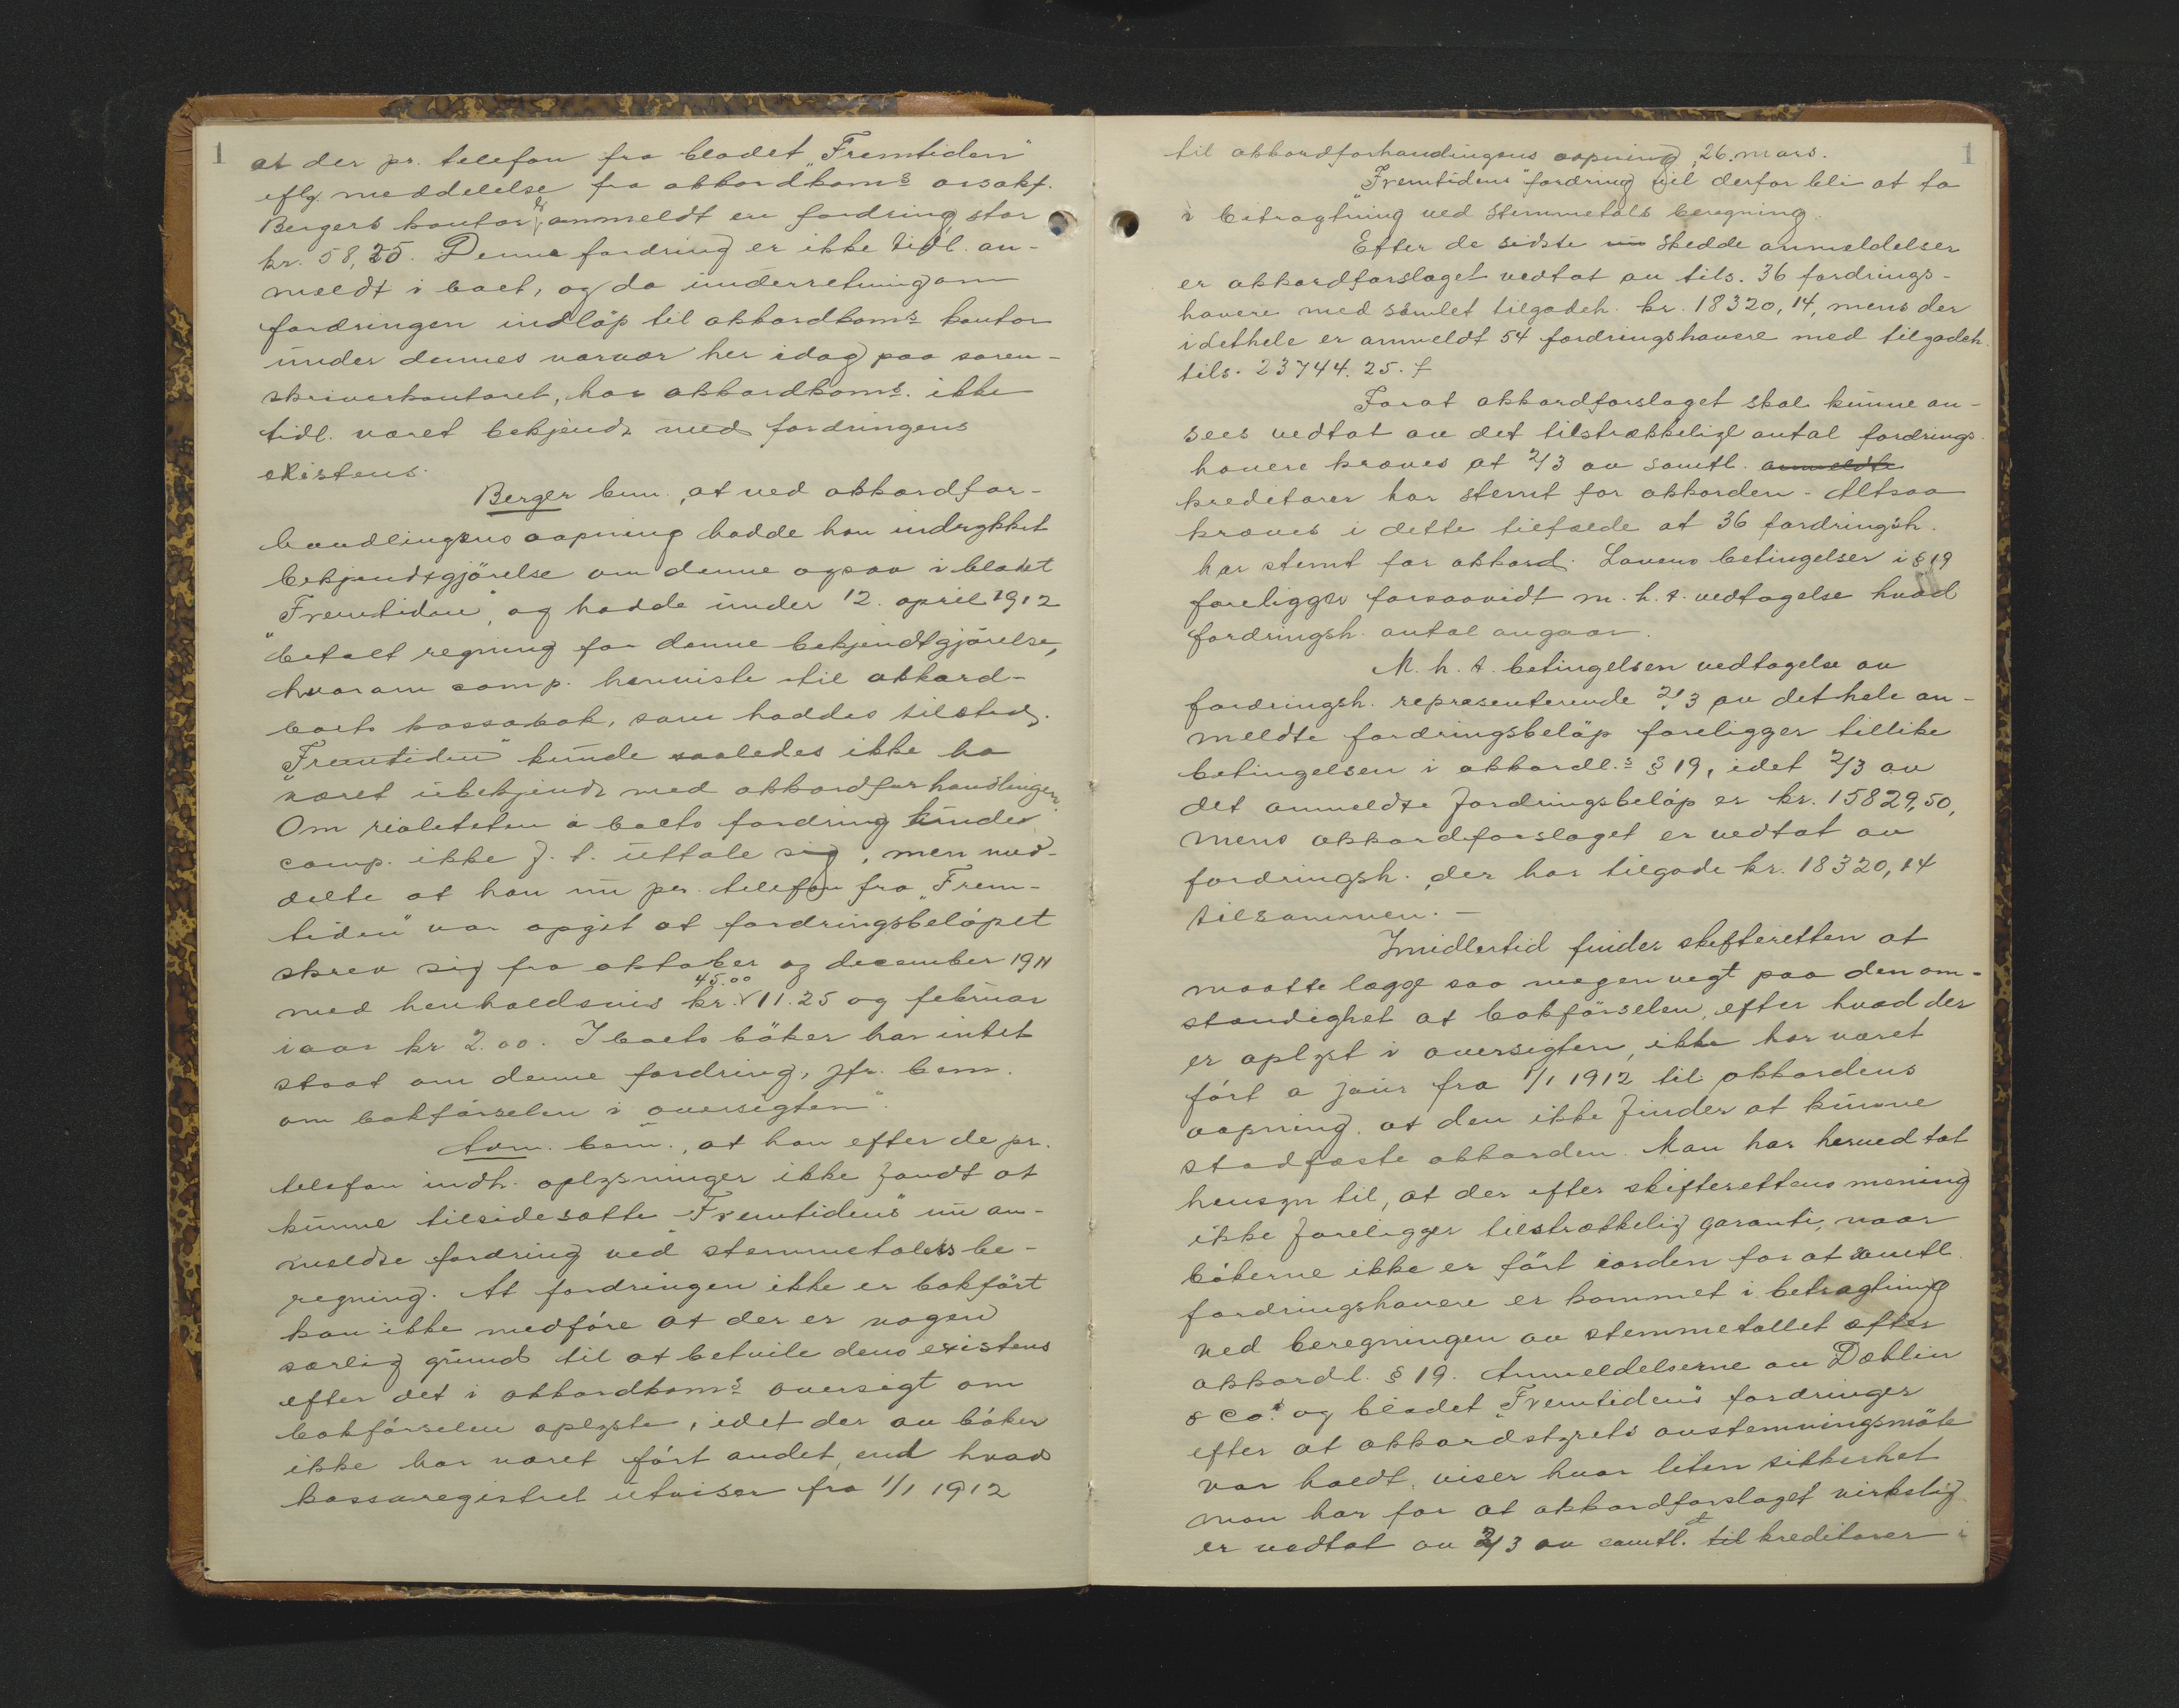 1
at der pr. telefon fra bladet „Fremtiden"
eflg. meddelelse fra akkordkoms orsakf.
Bergers kontor er anmeldt en fordring stor
kr. 58,25. Denne fordring er ikke tidl. an-
meldt i boet, og da underretning om
fordringen indløp til akkordkoms kontor
under dennes nærvær her idag paa soren-
skriverkontoret, har akkordkoms. ikke
tidl. været bekjendt med fordringens
existens.
Berger bem., at ved akkordfor-
handlingens aapning hadde han indrykket
bekjendtgjörelse om denne ogsaa i bladet
„Fremtiden", og hadde under 12. april 1912
betalt regning for denne bekjendtgjörelse,
hvorom comp. henviste til akkord-
boets kassabok, som haddes tilstede.
„Fremtiden" kunde saaledes ikke ha
været ubekjendt med akkordforhandlingen.
Om realiteten i boets fordring kunde
comp. ikke f. t. uttale sig, men med-
delte at han nu per telefon fra „Frem-
tiden" var opgit at fordringsbelöpet
skrev sig fra oktober og december 1911
med henholdsvis kr. 45.00 11.25 og februar
iaar kr 2.00. I boets böker har intet
staat om denne fordring, jfr. bem.
om bokförselen i „oversigten".
Adm. bem., at han efter de pr.
telefon indh. oplysninger ikke fandt at
kunne tilsidesætte „Fremtidens" nu an-
meldte fordring ved stemmetallets be-
regning. At fordringen ikke er bokfört
kan ikke medföre at der er nogen
særlig grund til at betvile dens existens
efter det i akkordkoms oversigt om
bokförselen oplyste, idet der av böker
ikke har været fört andet, end hvad
kassaregistret utviser fra 1/1 1912
1
til akkordforhandlingens aapning, 26. mars.
„Fremtidens" fordring vil derfor bli at ta
i betragtning ved stemmetals beregning.
Efter de sidste nu skedde anmeldelser
er akkordforslaget vedtat av tils. 36 fordrings-
havere med samlet tilgodeh. kr. 18320,14, mens der
idethele er anmeldt 54 fordringshavere med tilgodeh.
tils. 23744.25.
Forat akkordforslaget skal kunne an-
sees vedtat av det tilstrækkelige antal fordrings-
havere kræves at 2/3 av samtl. anmeldte
kreditorer har stemt for akkorden. Altsaa
kræves i dette tilfælde at 36 fordringsh.
har stemt for akkord. Lovens betingelser i § 19
foreligger forsaavidt m. h. t. vedtagelse hvad
fordringsh. antal angaar.
M. h. t. betingelsen vedtagelse av
fordringsh. repræsenterende 2/3 av det hele an-
meldte fordringsbelöp foreligger tillike
betingelsen i akkordl.s § 19, idet 2/3 av
det anmeldte fordringsbelöp er kr. 15829,50,
mens akkordforslaget er vedtat av
fordringsh. der har tilgode kr. 18320,14
tilsammen.—
Imidlertid finder skifteretten at
maatte lægge saa megen vegt paa den om-
standighet at bokförselen, efter hvad der
er oplyst i oversigten, ikke har været
fört a jour fra 1/1 1912 til akkordens
aapning. at den ikke finder at kunne
stadfæste akkorden. Man har herved tat
hensyn til, at der efter skifterettens mening
ikke foreligger tilstrækkelig garanti, naar
bökerne ikke er fört iorden for at samtl.
fordringshavere er kommet i betragtning
ved beregningen av stemmetallet efter
akkordl. § 19. Anmeldelserne av Dæhlin
& Co.s og bladet „Fremtidens" fordringer
efter at akkordstyrets avstemningsmöte
var holdt, viser hvor liten sikkerhet
man har for at akkordforslaget virkelig
er vedtat av 2/3 av samtl. til kreditorer